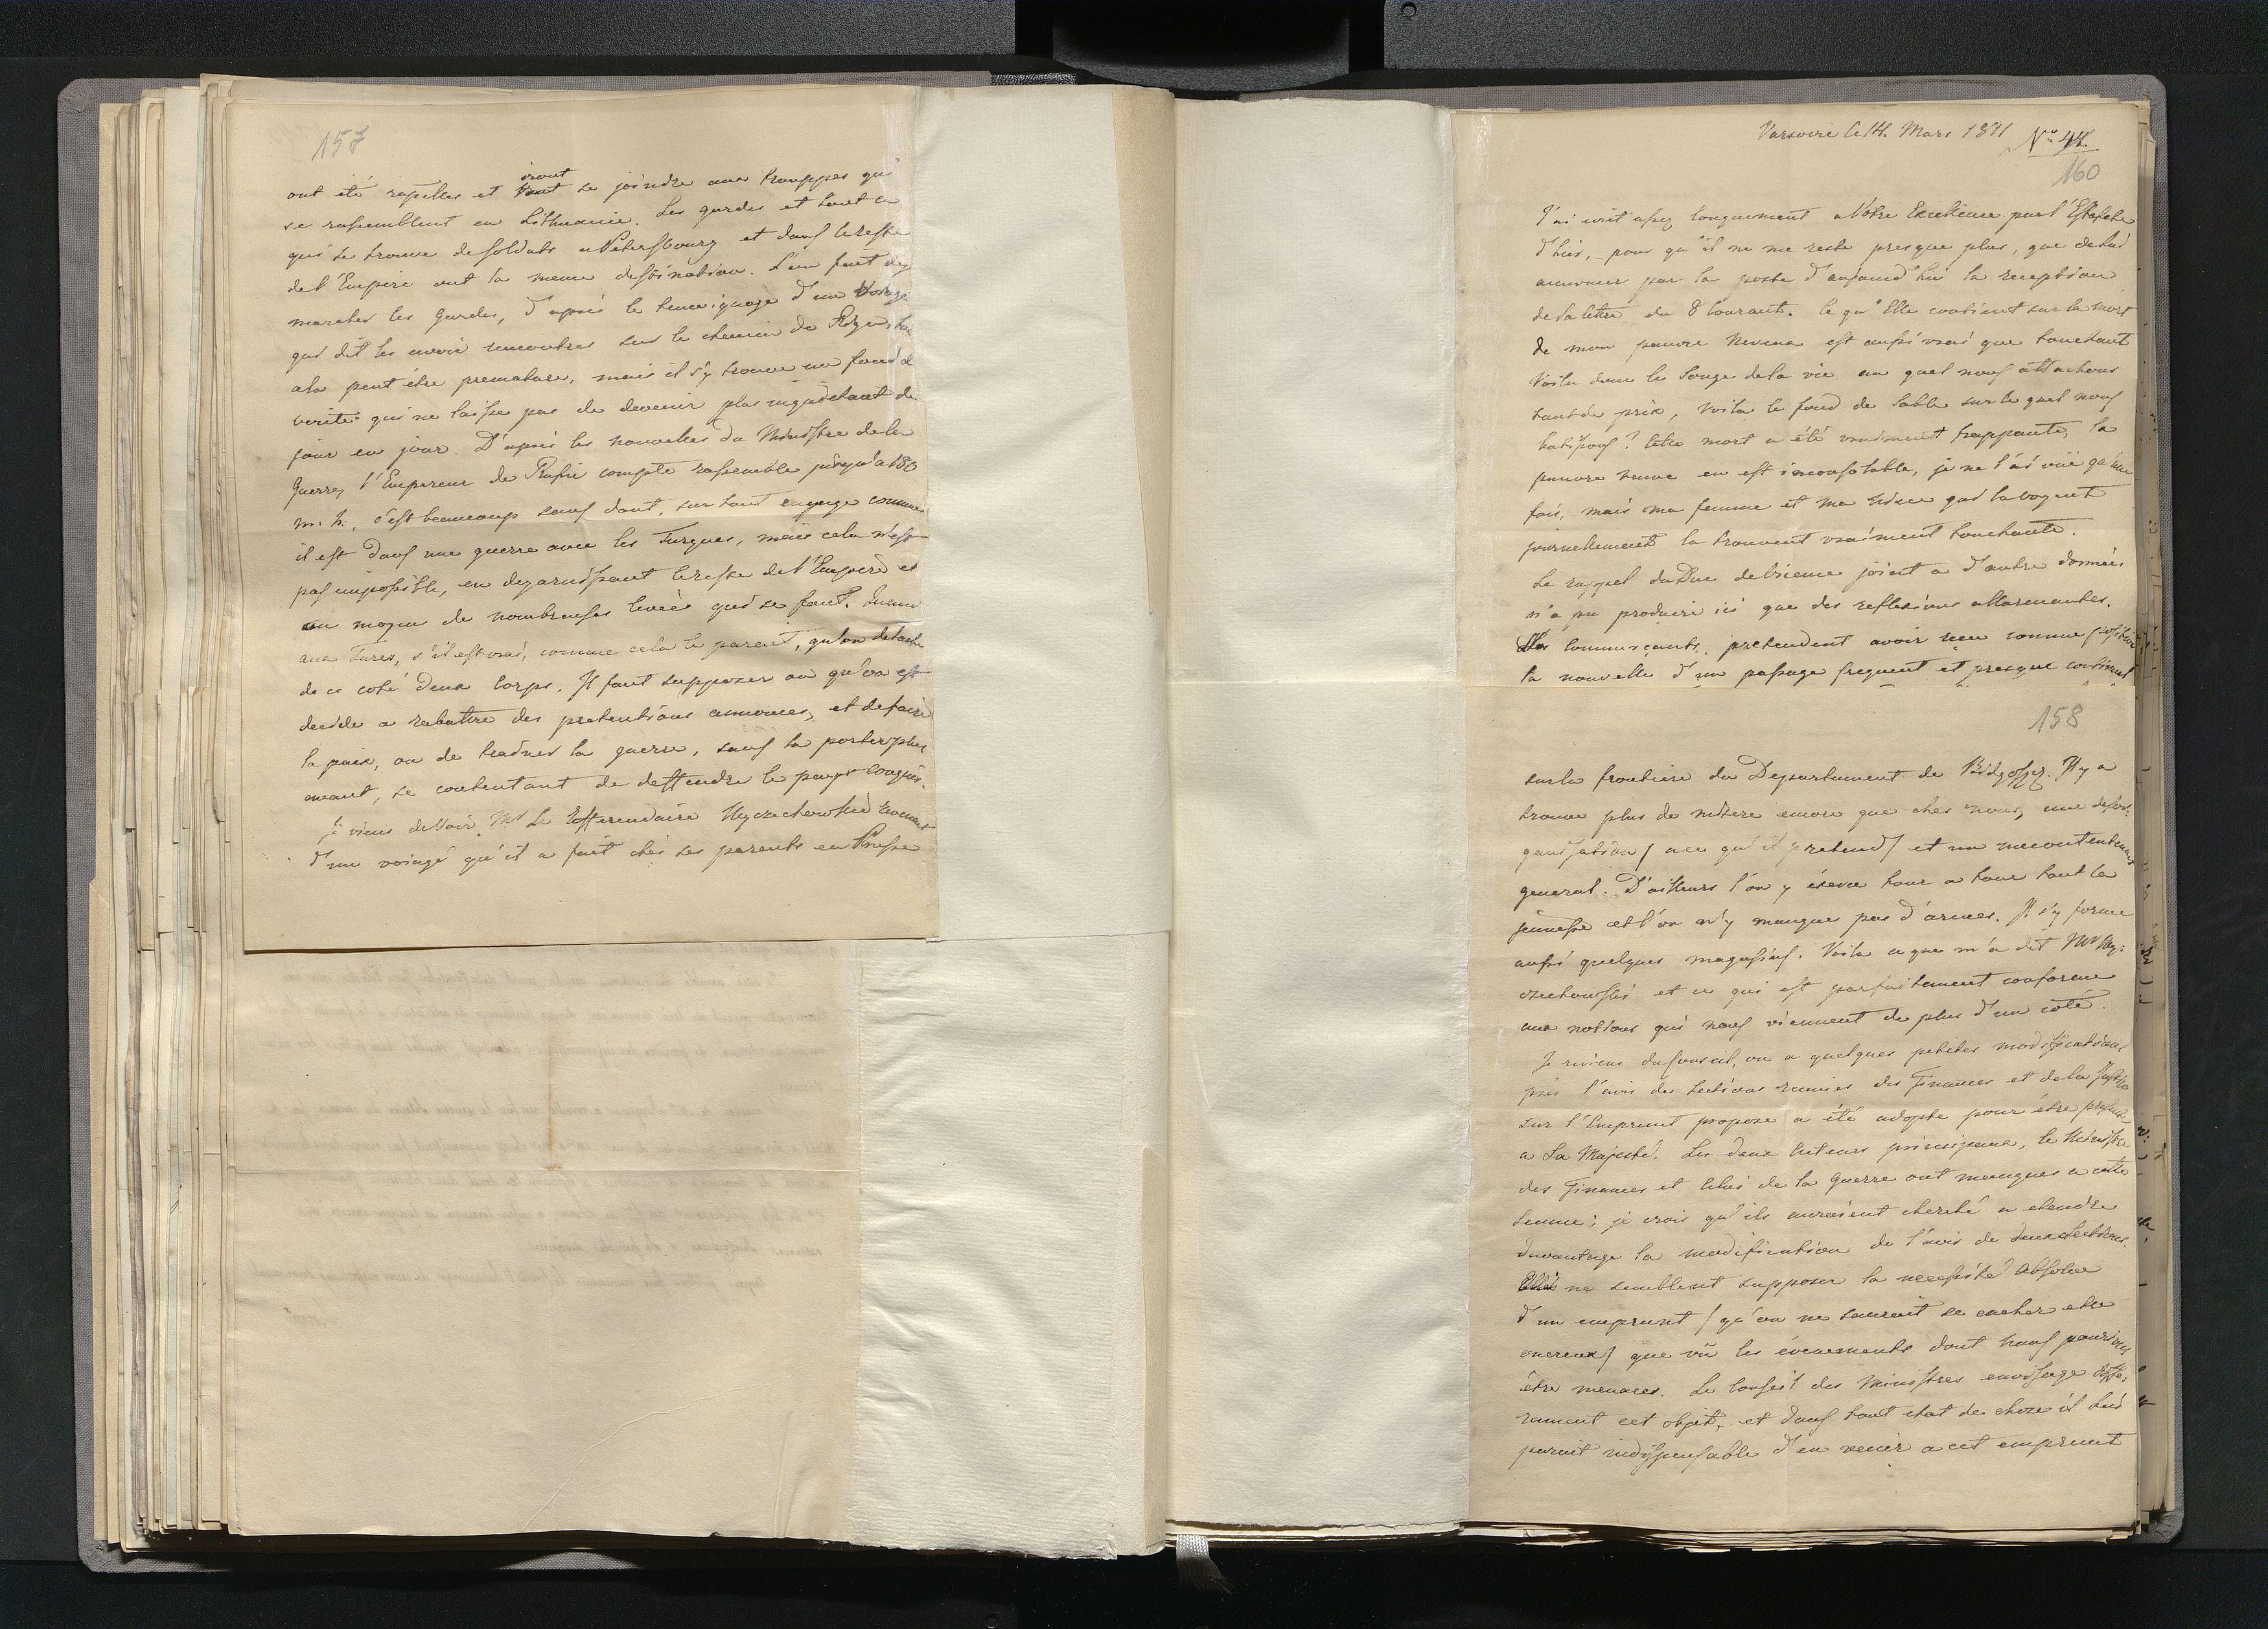 157
ont été rapelles et iront se joindre aux trouppes qui
se rassemblent en Lithuanie. Les gardes et tout ce
qui se trouve de soldats a Petersbourg et dans le reste
de l'Empire ont la meme destination. L'on fait deja
marcher les Gardes, d'après le temoignage d'un
qui dit les avoir rencontres sur le chemin de
cela peut être premature, mais il s'y trouve un fond de
verité qui ne laisse pas de devenir plus inquietant de
jour en jour. D'après les nouvelles du Ministre de la
Guerre, l'Empereur de Russie compte rassembler jusqu'a 180
m. h., c'est beaucoup sans dout, sur tout engage comme
il est dans une guerre avec les Turques, mais cela n'est
pas impossible, en degarnissant le reste de l'Empire et
au moyen de nombreuses levées qui se font. Quant
aux Turcs, s'il est vrai, comme cela le parait, qu'on detache
de ce coté deux Corps. Il faut supposer ou qu'on est
decidé a rabattre des pretentions annoncés, et de faire
la paix, ou de trainer la guerre, sans la porter plus
avant, se contentant de deffendre le pays conquis.
Je viens de Voir Mr Le Refferendaire Wyczechowski revenant
d'un voiage qu'il a fait chés ses parents en Prusse
Varsovie le 14. Mars 1811 No 44.
160
J'ai ecrit assez longuement a Votre Excellence par l'Estafette
d'hier, pour qu'il ne me reste presque plus, que de Lui
annoncer par la poste d'aujourd'hui la reception
de Sa lettre du 8 Courant. Ce qu'Elle contient sur la mort
de mon pauvre Neveu est aussi vrai que touchant
Voila donc le Songe de la vie au quel nous attachons
tant de prix, voila le fond de sable sur le quel nous
batissons? Cette mort a été vraiment frappante, la
pauvre veuve en est inconsolable, je ne l'ai vüe qu'une
fois, mais ma femme et ma Niece qui la voyent
journellement la trouvent vraiment touchante.
Le rappel du Duc de Vicence joint a d'autre données
n'a pu produire ici que des reflexions allarmantes.
Les Commerçants pretendent avoir recu comme positive
la nouvelle d'un passage frequent et presque continuel
158
sur la frontiere du Departement de Bidgoszcz. Il y a
trouve plus de misere encore que ches nous, une desor-
ganisation / a ce qu'il pretend / et un mecontentement
general. D'ailleurs l'on y exerce tour a tour tout la
jeunesse et l'on n'y manque pas d'armes. Il s'y forme
aussi quelques magasins. Voila ce que m'a dit Mr Wy-
czechowski et ce qui est parfaitement conforme
aux notions qui nous viennent de plus d'un côté.
Je reviens du Conseil, ou a quelques petites modifications
près l'avis des Sections reunies des Finances et de la Justice
sur l'Emprunt propose a été adopté pour être presenté
a Sa Majesté. Les deux Auteurs principaux, le Ministre
des Finances et Celui de la Guerre ont manques a cette
seance; je crois qu'ils auraient cherché a etendre
davantage la modification de l'avis de deux Sections.
Elles ne semblent supposer la necessité absolue
d'un emprunt / qu'on ne saurait se cacher etre
onereux / que vû les évenements dont nous pourions
être menaces. Le Conseil des Ministres envisage diffe-
rament cet objet, et dans tout etat de chose il lui
parait indispensable d'en venir a cet emprunt